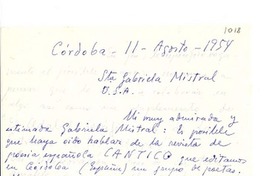 1018
Córdoba - 11 - Agosto - 1954
Sta Gabriela Mistral
U.S.A.
Mi muy admirada y
estimada Gabriela Mistral: Es posible
que haya oido hablar de la revista de
poesía española CANTICO que editamos
en Córdoba (España) un grupo de poetas.